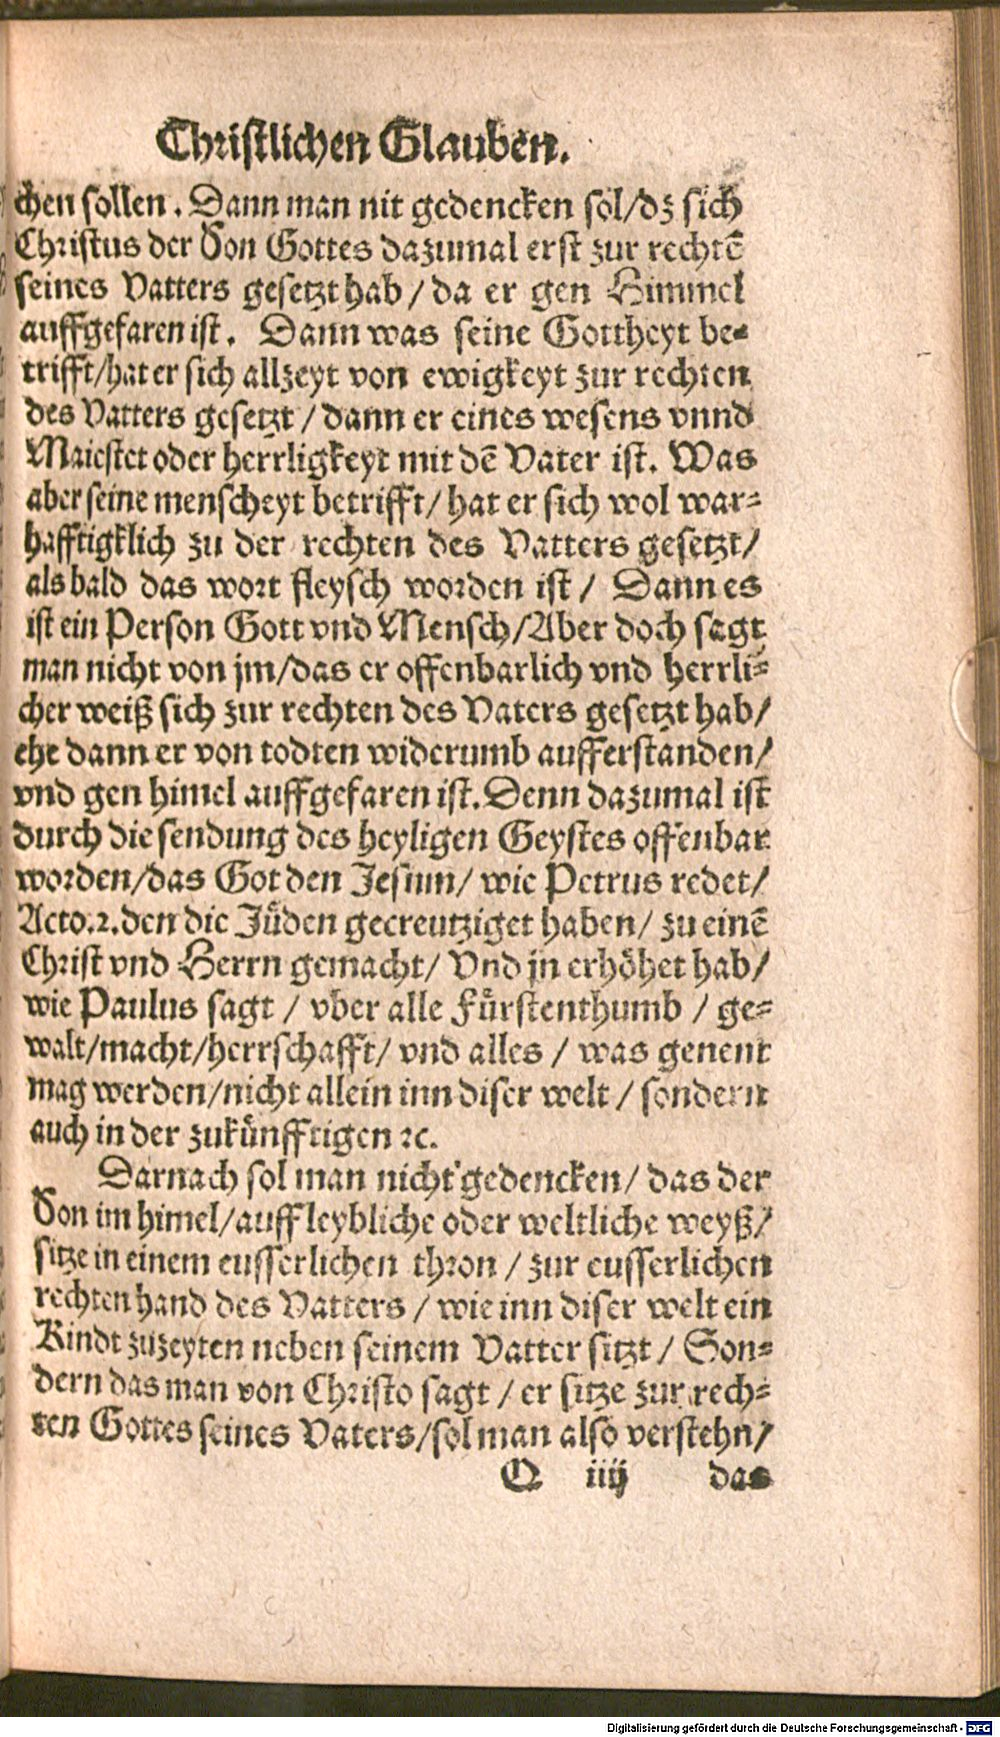 Christlichen Glauben.
chen sollen. Dann man nit gedencken sol/dz sich
Christus der Son Gottes dazumal erst zur rechtē
seines Vatters gesetzt hab/ da er gen Himmel
auffgefaren ist. Dann was seine Gottheyt be⸗
trifft/hat er sich allzeyt von ewigkeyt zur rechten
des Vatters gesetzt/ dann er eines wesens vnnd
Maiestet oder herrligkeyt mit dē Vater ist. Was
aber seine menscheyt betrifft/ hat er sich wol war⸗
hafftigklich zu der rechten des Vatters gesetzt/
als bald das wort fleysch worden ist/ Dann es
ist ein Person Gott vnd Mensch/Aber doch sagt
man nicht von jm/das er offenbarlich vnd herrli⸗
cher weiß sich zur rechten des Vaters gesetzt hab/
ehe dann er von todten widerumb aufferstanden/
vnd gen himel auffgefaren ist. Denn dazumal ist
durch die sendung des heyligen Geystes offenbar
worden/das Got den Jesum/ wie Petrus redet/
Acto.2.den die Jüden gecreutziget haben/ zu einē
Christ vnd Herrn gemacht/ Vnd jn erhöhet hab/
wie Paulus sagt/ vber alle Fürstenthumb/ ge⸗
walt/macht/herrschafft/ vnd alles/ was genent
mag werden/nicht allein inn diser welt/ sondern
auch in der zukünfftigen ꝛc.
Darnach sol man nicht gedencken/ das der
Son im himel/auff leybliche oder weltliche weyß/
sitze in einem eusserlichen thron/ zur eusserlichen
rechten hand des Vatters/ wie inn diser welt ein
Kindt zuzeyten neben seinem Vatter sitzt/ Son⸗
dern das man von Christo sagt/ er sitze zur rech⸗
ten Gottes seines Vaters/sol man also verstehn/
Q iiij das
Digitalisierung gefördert durch die Deutsche Forschungsgemeinschaft - DFG